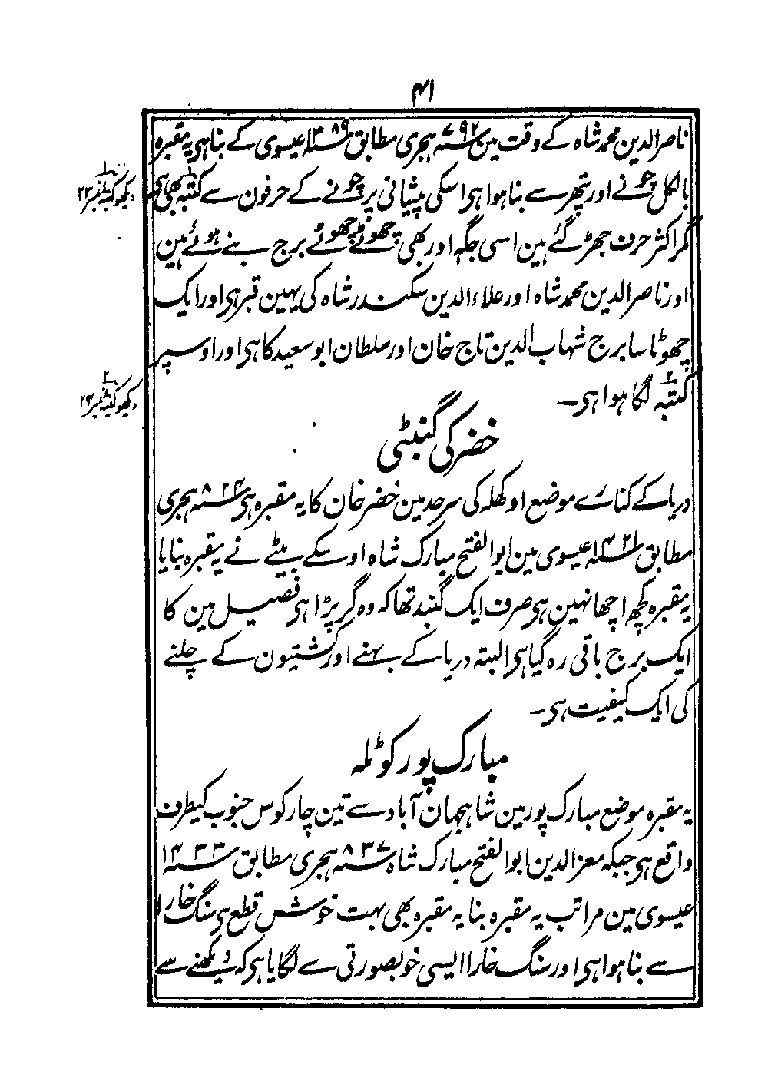 ۴۱
ناصرالدین محمد شاہ کے وقت مین ۷۹۲ سنہ ہجری مطابق ۱۳۸۹ سنہ عیسوی کے بنا ہی یہ مقبرہ
بالکل چونے اور پتھر سے بنا ہوا ہی اسکی پیشانی پر چونے کے حرفون سے کتبہ بھی ہی
دیکھو کتبہ نمبر ۲۲
مگر اکثر حرف جھڑ گئے ہین اسی جگہ اور بھی چھوٹے چھوٹے برج بنے ہوئے ہین
اور ناصرالدین محمد شاہ اور علاءالدین سکندر شاہ کی یہین قبر ہی اور ایک
چھوٹا سا برج شہاب الدین تاج خان اور سلطان ابو سعید کا ہی اور اوسپر
کتبہ لگا ہوا ہی۔
دیکھو کتبہ نمبر ۲۳
خضر کی گنبٹی
دریا کے کنارے موضع اوکھلہ کی سرحد مین خضر خان کا یہ مقبرہ ہی ۸۲۴ سنہ ہجری
مطابق ۱۴۲۱ سنہ عیسوی مین ابوالفتح مبارک شاہ اوسکے بیٹے نے یہ مقبرہ بنایا
یہ مقبرہ کچھ اچھا نہین ہی صرف ایک گنبد تھا کہ وہ گر پڑا ہی فصیل مین کا
ایک برج باقی رہ گیا ہی البتہ دریا کے بہنے اور کشتیون کے چلنے
کی ایک کیفیت ہی۔
مبارک پور کوٹلہ
یہ مقبرہ موضع مبارک پور مین شاہجہان آباد سے تین چار کوس جنوب کیطرف
واقع ہی جبکہ معزالدین ابوالفتح مبارک شاہ ۸۳۷ سنہ ہجری مطابق ۱۴۳۳ سنہ
عیسوی مین مرا تب یہ مقبرہ بنا یہ مقبرہ بھی بہت خوش قطع ہی سنگ خارا
سے بنا ہوا ہی اور سنگ خارا ایسی خوبصورتی سے لگایا ہی کہ دیکھنے سے